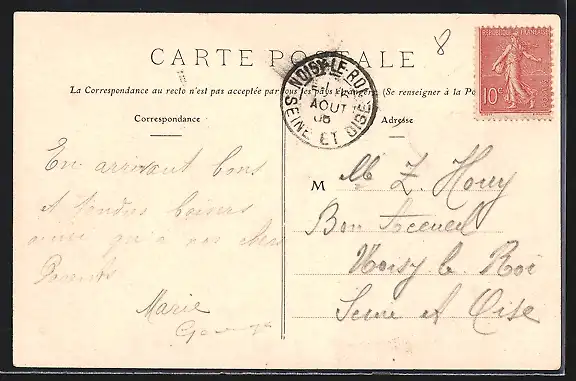 8
CARTE POSTALE
RÉPUBLIQUE FRANÇAISE
10c
La Correspondance au recto n'est pas acceptée par tous les pays étrangers (Se renseigner à la Po
NOISY-LE-ROI
AOUT
06
SEINE ET OISE
Correspondance
Adresse
En arrivant bons
et tendres baisers
ainsi qu'à vos chers
Parents
Marie
M Z. Houy
Bon Accueil
Noisy le Roi
Seine et Oise